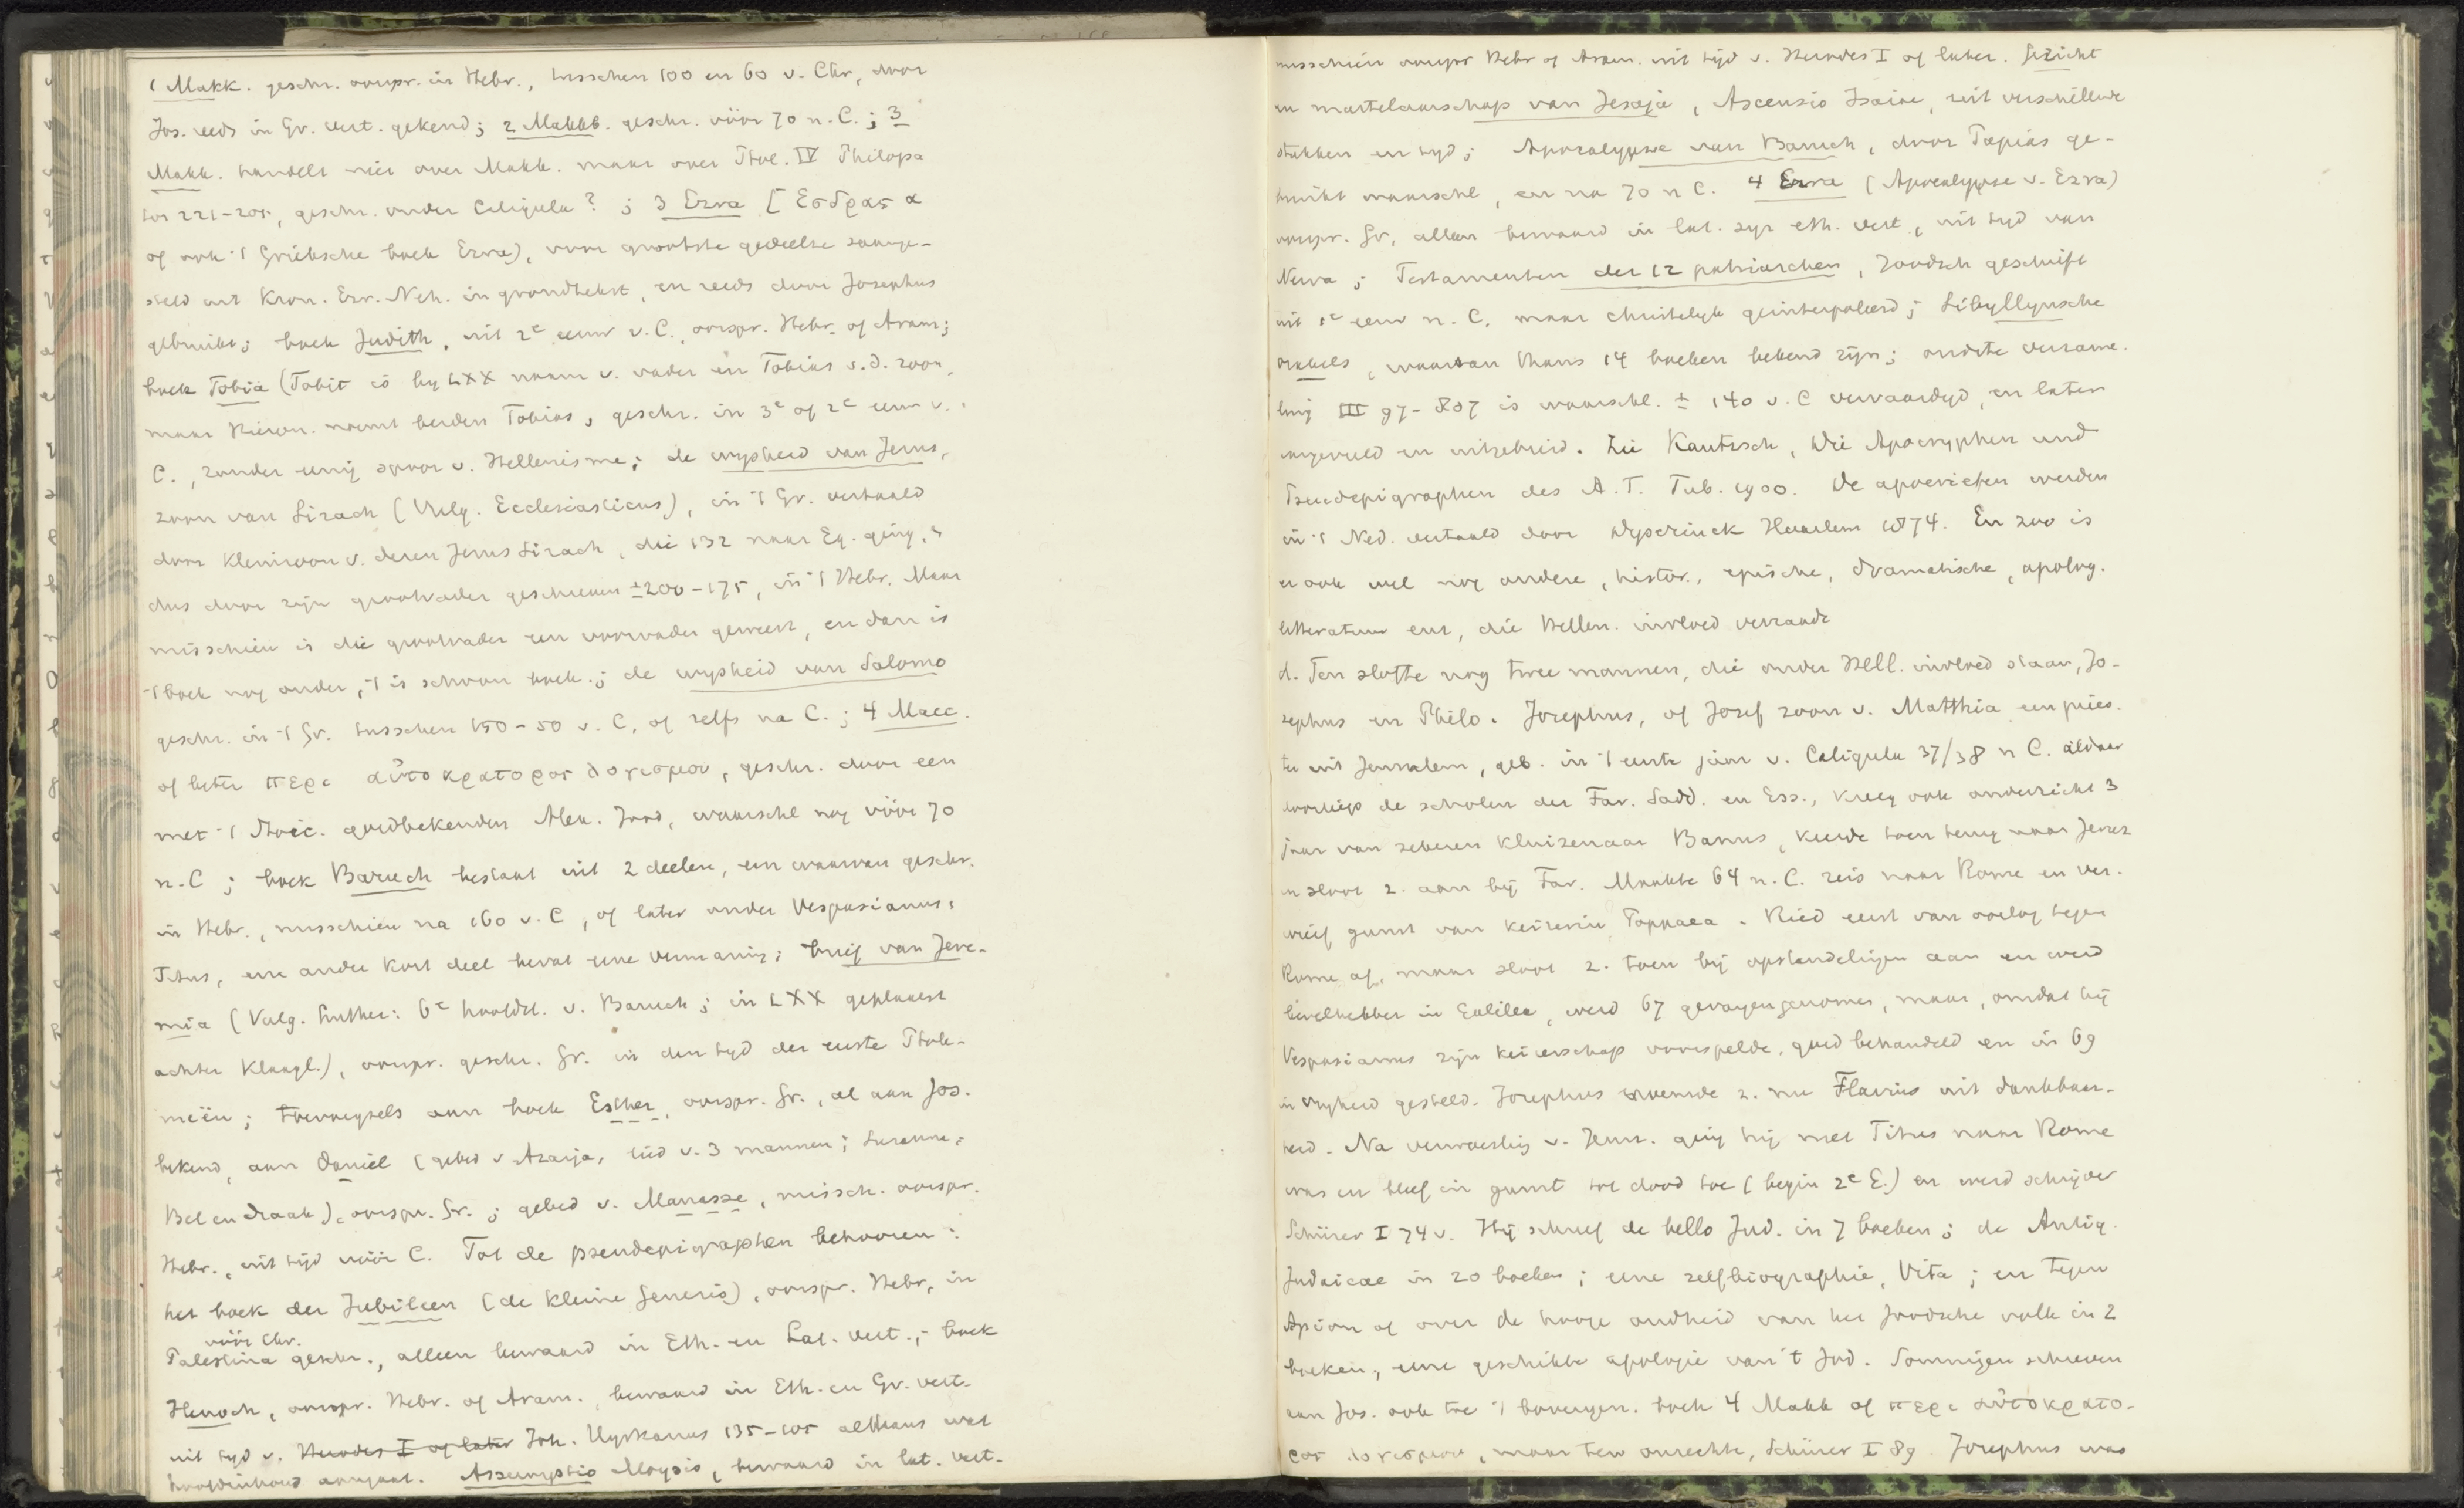 1 Makk. geschr. oorspr. in Hebr., tusschen 100 en 60 v. Chr, door
Jos. reeds in Gr. vert. gekend; 2 Makkb. geschr. vóór 70 n. C.; 3
Makk. handelt niet over Makk. maar over Ptol. IV Philopa
tor 221-204, geschr. onder Caligula? ; 3 Ezra [Εσδρας α
of ook 't Grieksche boek Ezra), voor grootste gedeelte saamge-
steld uit Kron. Ezr. Neh. in grondtekst, en reeds door Josephus
gebruikt; boek Judith, uit 2e eeuw v. C., oorspr. Hebr. of Aram;
boek Tobia (Tobit is by LXX naam v. vader en Tobias v. d. zoon,
maar Hieron. noemt beiden Tobias, geschr. in 3e of 2e eeuw v.
C., zonder eenig spoor v. Hellenisme; de wysheid van Jezus,
zoon van Sirach (Vulg. Ecclesiasticus), in 't Gr. vertaald
door kleinzoon v. dezen Jezus Sirach, die 132 naar Eg. ging, is
dus door zijn grootvader geschreven ±200-175, in 't Hebr. Maar
misschien is die grootvader een voorvader geweest, en dan is
't boek nog ouder, 't is schoon boek.; de wysheid van Salomo
geschr. in 't Gr. tusschen 150-50 v. C, of zelfs na C.; 4 Macc.
of beter περι αυτοκρατορος λογισμου, geschr. door een
met 't Stoic. goedbekenden Alex. Jood, waarschl nog vóór 70
n. C; boek Baruch bestaat uit 2 deelen, een waarvan geschr.
in Hebr., misschien na 160 v. C, of later onder Vespasianus,
Titus, een ander kort deel bevat eene vermaning; brief van Jere-
mia (Vulg. Luther: 6e hoofdst. v. Baruch; in LXX geplaatst
achter Klaagl.), oorspr. geschr. Gr. in den tyd der eerste Ptole-
meën; toevoegsels aan boek Esther, oorspr. Gr., al aan Jos.
bekend, aan Daniel (gebed v Azarja, lied v. 3 mannen; Suzanna;
Bel en Draak), oorspr. Gr.; gebed v. Manasse, missch. oorspr.
Hebr., uit tijd vóór C. Tot de pseudepigraphen behooren:
het boek der Jubileen (de kleine Genesis), oorspr. Hebr, in
vóór Chr.
Palestina geschr., alleen bewaard in Eth. en Lat. vert.; boek
Henoch, oorspr. Hebr. of Aram., bewaard in Eth. en Gr. vert.
uit tyd v. Herodes I of later Joh. Hyrkanus 135-105 althans wat
hoofdinhoud aangaat. Assumptio Moysis, bewaard in lat. vert.
misschien oorspr Hebr of Aram. uit tijd v. Herodes I of later. Gezicht
en martelaarschap van Jesaja, Ascensio Isaiae, uit verschillende
stukken en tyd; Apocalypse van Baruch, door Papias ge-
bruikt waarschl, en na 70 n C. 4 Ezra (Apocalypse v. Ezra)
oorspr. Gr, alleen bewaard in lat. syr eth. vert, uit tyd van
Nerva; Testamenten der 12 patriarchen, Joodsch geschrift
uit 1e eeuw n. C. maar christelyk geinterpoleerd; Sibyllynsche
orakels, waarvan thans 14 boeken bekend zijn; oudste verzame.
ling III 97-807 is waarschl. ± 140 v. C vervaardigd, en later
aangevuld en uitgebreid. Zie Kautzsch, Die Apocryphen und
Pseudepigraphen des A. T. Tub. 1900. De apocriefen werden
in 't Ned. vertaald door Dyserinck Haarlem 1874. En zoo is
er ook wel nog andere, histor., epische, dramatische, apolog.
litteratuur enz, die Hellen. invloed verraadt
d. Ten slotte nog twee mannen, die onder Hell. invloed staan, Jo-
zephus en Philo. Josephus, of Jozef zoon v. Matthia een pries-
ter uit Jeruzalem, geb. in 't eerste jaar v. Caligula 37/38 n C. aldaar
doorliep de scholen der Far. Sadd. en Ess., kreeg ook onderricht 3
jaar van zekeren kluizenaar Banus, keerde toen terug naar Jeruz
en sloot z. aan bij Far. Maakte 64 n. C. reis naar Rome en ver-
wierf gunst van keizerin Poppaea. Ried eerst van oorlog tegen
Rome af, maar sloot z. toen bij opstandelingen aan en werd
bevelhebber in Galilea, werd 67 gevangengenomen, maar, omdat hij
Vespasianus zijn keizerschap voorspelde, goed behandeld en in 69
in vryheid gesteld. Josephus noemde z. nu Flavius uit dankbaar-
heid. Na verwoesting v. Jeruz. ging hij met Titus naar Rome
was en bleef in gunst tot dood toe (begin 2e E.) en werd schrijver
Schürer I 74 v. Hij schreef de bello Jud. in 7 boeken; de Antiq.
Judaicae in 20 boeken; eene zelfbiographie, Vita; en tegen
Apion of over de hooge oudheid van het Joodsche volk in 2
boeken, eene geschikte apologie van 't Jod. Sommigen schreven
aan Jos. ook toe 't bovengen. boek 4 Makk of περι αυτοκρατο-
ρος λογισμου, maar ten onrechte, Schürer I 89. Josephus was